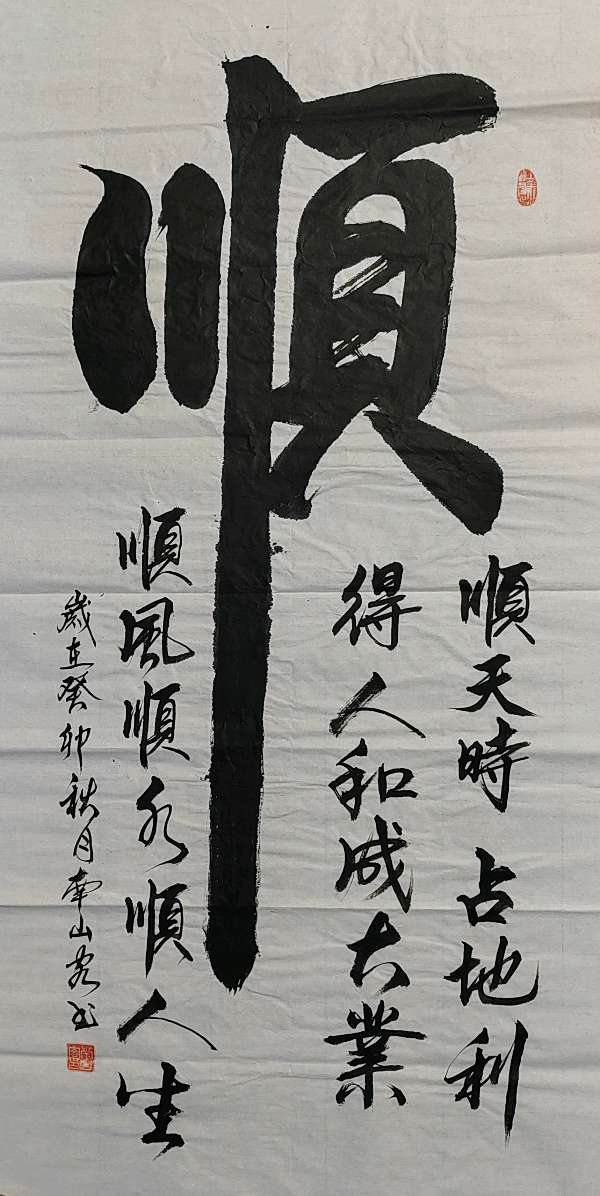 順
順天時 占地利
得人和成大業
順風順水順人生
歲在癸卯秋月南山客書